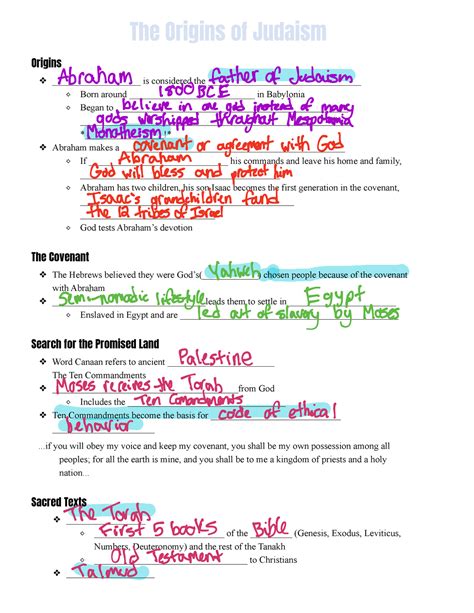 The Origins of Judaism
Origins
❖ Abraham is considered the father of Judaism
○ Born around 1800 BCE in Babylonia
○ Began to believe in one god instead of many
gods worshipped throughout Mesopotamia
*Monotheism*
❖ Abraham makes a covenant or agreement with God
○ If Abraham his commands and leave his home and family,
God will bless and protect him
○ Abraham has two children, his son Isaac becomes the first generation in the covenant,
Isaac's grandchildren fand
the 12 tribes of Israel
○ God tests Abraham's devotion
The Covenant
❖ The Hebrews believed they were God's( Yahweh) chosen people because of the covenant
with Abraham
❖ Semi-nomadic lifestyle leads them to settle in Egypt
○ Enslaved in Egypt and are led out of slavery by Moses
Search for the Promised Land
❖ Word Canaan refers to ancient Palestine
The Ten Commandments
❖ Moses receives the Torah from God
○ Includes the Ten Comandments
❖ Ten Commandments become the basis for code of ethical
behavior
...if you will obey my voice and keep my covenant, you shall be my own possession among all
peoples; for all the earth is mine, and you shall be to me a kingdom of priests and a holy
nation...
Sacred Texts
❖ The Torah
○ First 5 books of the Bible (Genesis, Exodus, Leviticus,
Numbers, Deuteronomy) and the rest of the Tanakh
○ Old Testament to Christians
❖ Talmud